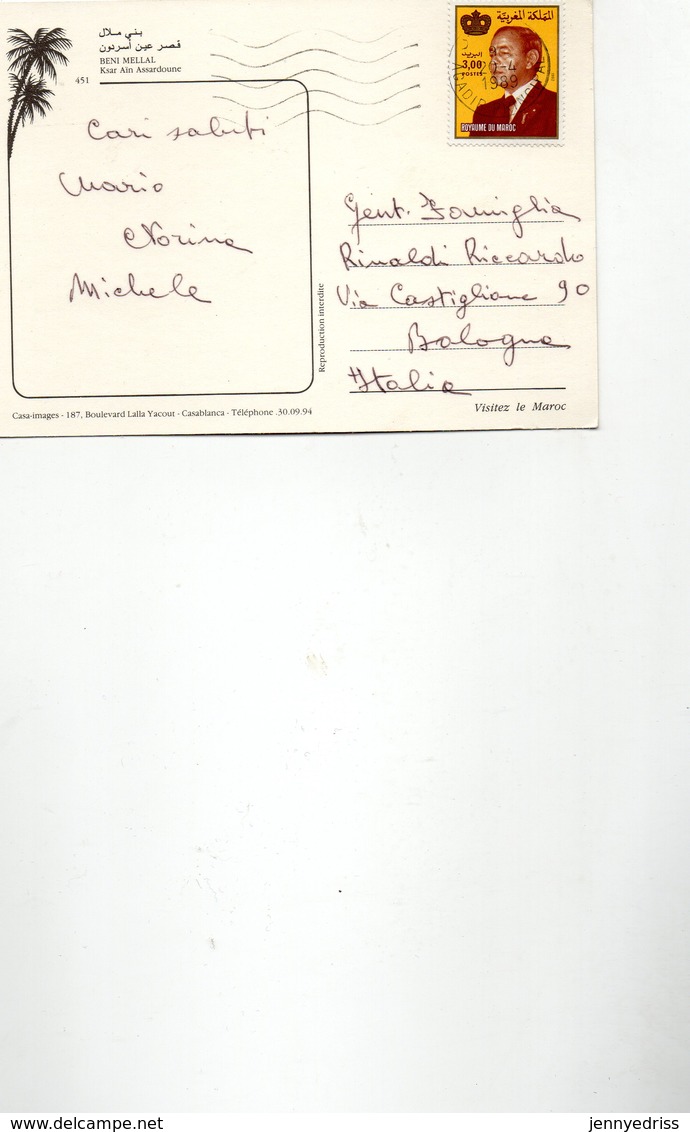 بني ملال
قصر عين أسردون
BENI MELLAL
Ksar Aïn Assardoune
451
المملكة المغربية
البريد
3,00
POSTES
ROYAUME DU MAROC
-4
1989
AGADIR
Cari saluti
Mario
Norina
Michele
Gent. Famiglia
Rinaldi Riccardo
Via Castiglione 90
Bologna
Italia
Reproduction interdite
Casa-images - 187, Boulevard Lalla Yacout - Casablanca - Téléphone .30.09.94
Visitez le Maroc
www.delcampe.net
jennyedriss